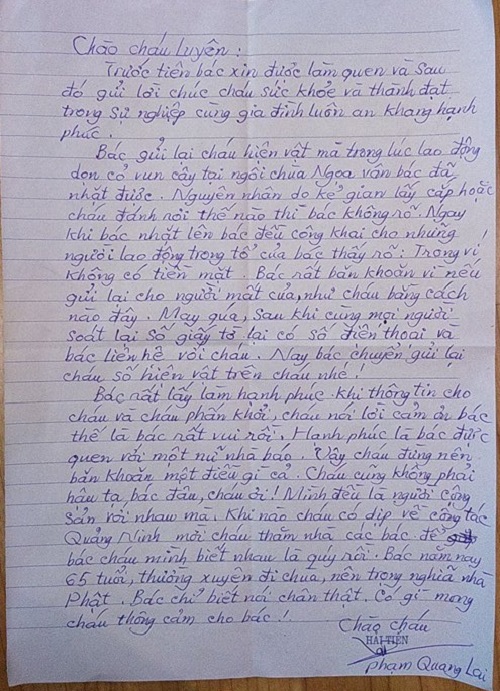 Chào cháu Luyên:
Trước tiên bác xin được làm quen và sau
đó gửi lời chúc cháu sức khỏe và thành đạt
trong sự nghiệp cùng gia đình luôn an khang hạnh
phúc.
Bác gửi lại cháu hiện vật mà trong lúc lao động
dọn cỏ vun cây tại ngôi chùa Ngọa vân bác đã
nhặt được. Nguyên nhân do kẻ gian lấy cắp hoặc
cháu đánh rơi thế nào thì bác không rõ. Ngay
khi bác nhặt lên bác đều công khai cho những
người lao động trong tổ của bác thấy rõ. Trong ví
không có tiền mặt. Bác rất băn khoăn vì nếu
gửi lại cho người mất của, như cháu bằng cách
nào đây. May quá, sau khi cùng mọi người
soát lại số giấy tờ lại có số điện thoại và
bác liên hệ với cháu. Nay bác chuyển gửi lại
cháu số hiện vật trên cháu nhé!
Bác rất lấy làm hạnh phúc khi thông tin cho
cháu và cháu phấn khởi, cháu nói lời cảm ơn bác
thế là bác rất vui rồi. Hạnh phúc là bác được
quen với một nữ nhà báo. Vậy cháu đừng nên
băn khoăn một điều gì cả. Cháu cũng không phải
hậu tạ bác đâu, cháu ơi! Mình đều là người cộng
sản với nhau mà. Khi nào cháu có dịp về công tác
Quảng Ninh mời cháu thăm nhà các bác để
bác cháu mình biết nhau là quý rồi. Bác năm nay
65 tuổi, thường xuyên đi chùa, nên trọng nghĩa nhà
Phật. Bác chỉ biết nói chân thật. Có gì mong
cháu thông cảm cho bác!
Chào cháu
HẢI TIẾN
Phạm Quang Lai